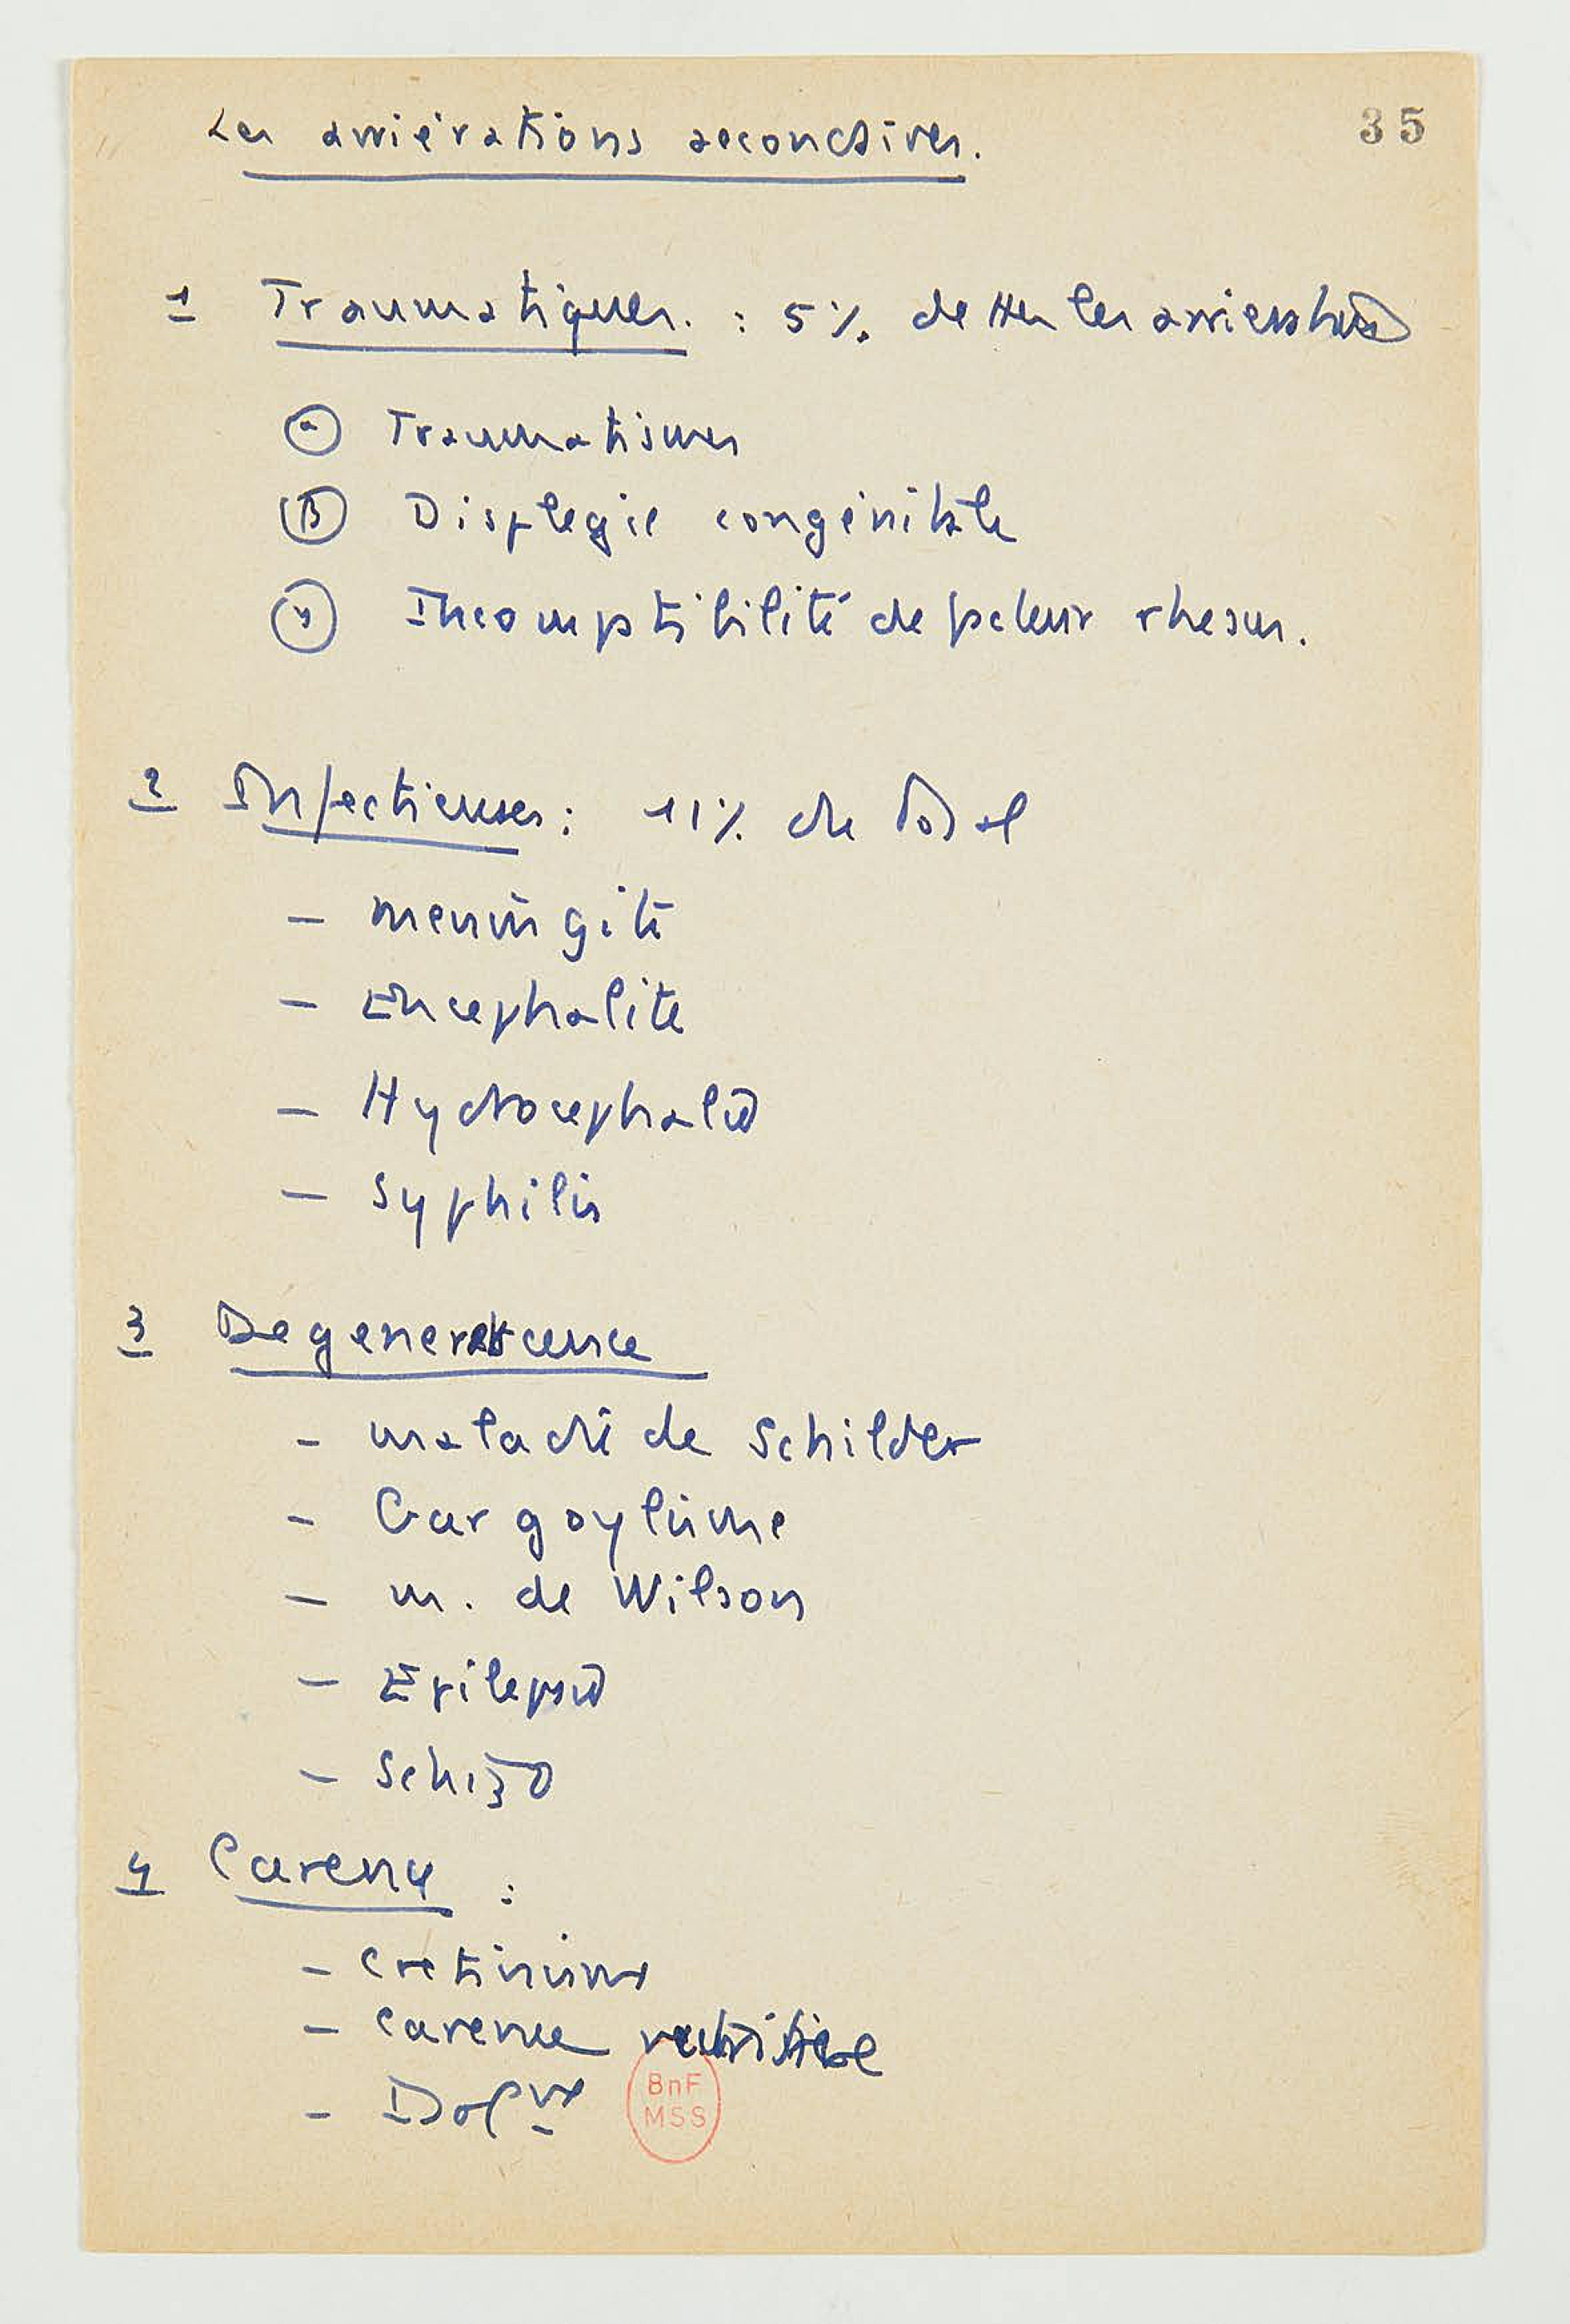 Les arriérations secondaires.
35
1 Traumatiques. : 5 % de ttes les arriérations
α Traumatismes
β Displegie congénitale
γ Incomptibilité de facteur rhesus.
2 Infectieuses : 11 % du total
- meningite
- Encephalite
- Hydrocephalie
- Syphilis
3 Degenerescence
- maladie de Schilder
- Gargoylisme
- m. de Wilson
- Epilepsie
- Schizo
4 Carence :
- Cretinisme
- Carence nutritive
BnF
MSS